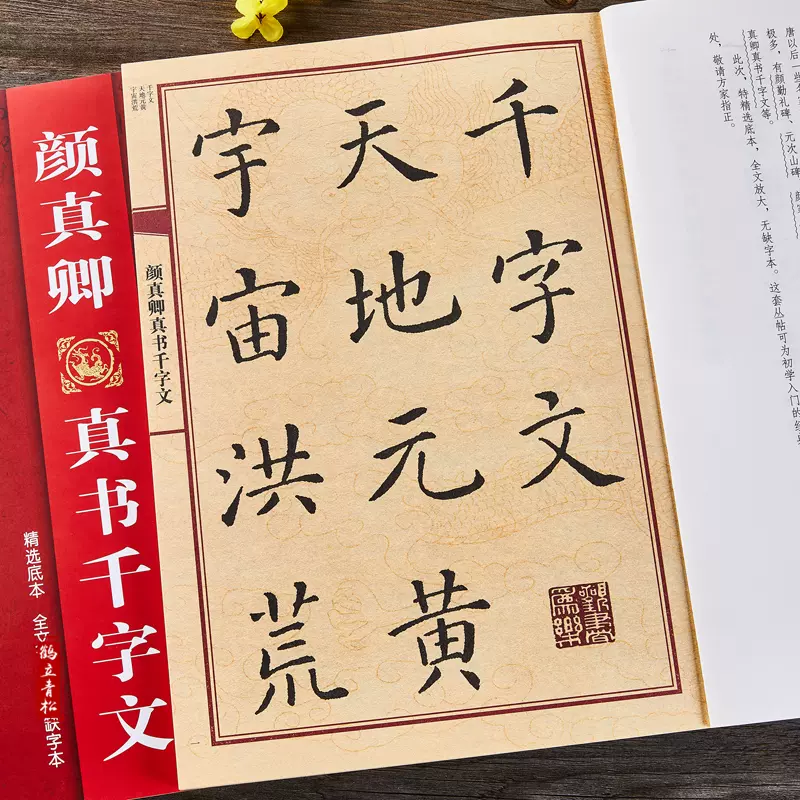 千字文
天地元黄
宇宙洪荒
千字文
天地元黄
宇宙洪荒
颜真卿真书千字文
一
颜真卿
真书千字文
精选底本 全文
缺字本
鹤立青松
唐以后一些
极多,有颜勤礼碑、元次山碑、颜
真卿真书千字文等。
此次,特精选底本,全文放大,无缺字本。这套丛帖可为初学入门的经典
处,敬请方家指正。